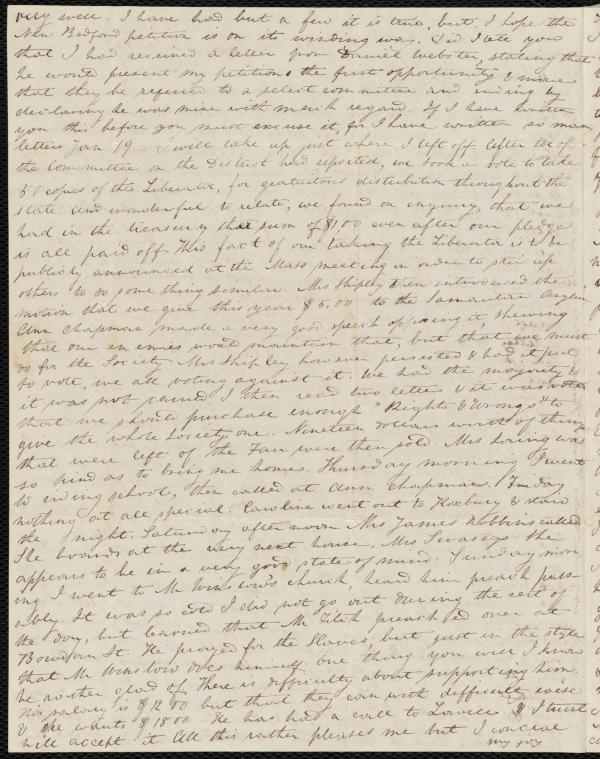 very well. I have had but a few it is true, but I hope the
New Bedford petition is on its winding way. Did I tell you
that I had received a letter from Daniel Webster, stating that
he would present my petitions the first opportunity & move
that they be referred to a select committee and ending by
declaring he was mine with much regard. If I have written
you this before you must excuse it, for I have written so many
letters Jan 19 I will take up just where I left off After the
the Committee on the District had reported, we took a vote to take
50 copies of the Liberator, for gratuitous distribution throughout the
state. And wonderful to relate, we found on enquiry, that we
had in the treasury the sum of $1,00 even after our pledge
is all paid off. This fact of our taking the Liberator is to be
publicly announced at the Mass meeting in order to stir up
others to do some thing similar. Mrs Shipley then introduced the
motion that we give this year $5.00 to the Samaritan Asylum
Ann Chapman made a very good speech opposing it, shewing
that our enemies would maintain that, but that we must
do for the Society Mrs Shipley however persisted & had it put
to vote, we all voting against it. We had the majority &
it was not carried I then read two letters & it was voted
that we should purchase enough "Rights & Wrongs" to
give the whole Society one. Nineteen dollars worth of things
that were left of the Fair were then sold. Mrs Loring was
so kind as to bring me home. Thursday morning I went
to sewing school, then called at Ann Chapmans. Friday
nothing at all special. Caroline went out to Roxbury & staid
the night. Saturday afternoon Mrs James Robbins called
She boards at the very next house, Mrs Swaseys. She
appears to be in a very good state of mind. Sunday morn
ing I went to Mr Winslow's church, heard him preach pass-
ably. It was so cold I did not go out during the rest of
the day, but learned that Mr preached over at
Bowdoin St. He prayed for the Slaves, but just in the style
that Mr Winslow does himself. One thing you will I know
be rather glad of. There is difficulty about supporting him
His salary is $1200 but that they can with difficulty raise
& he wants $1800. He has had a call to Lowell & I trust
will accept it. All this rather pleases me but I conceal
my joy